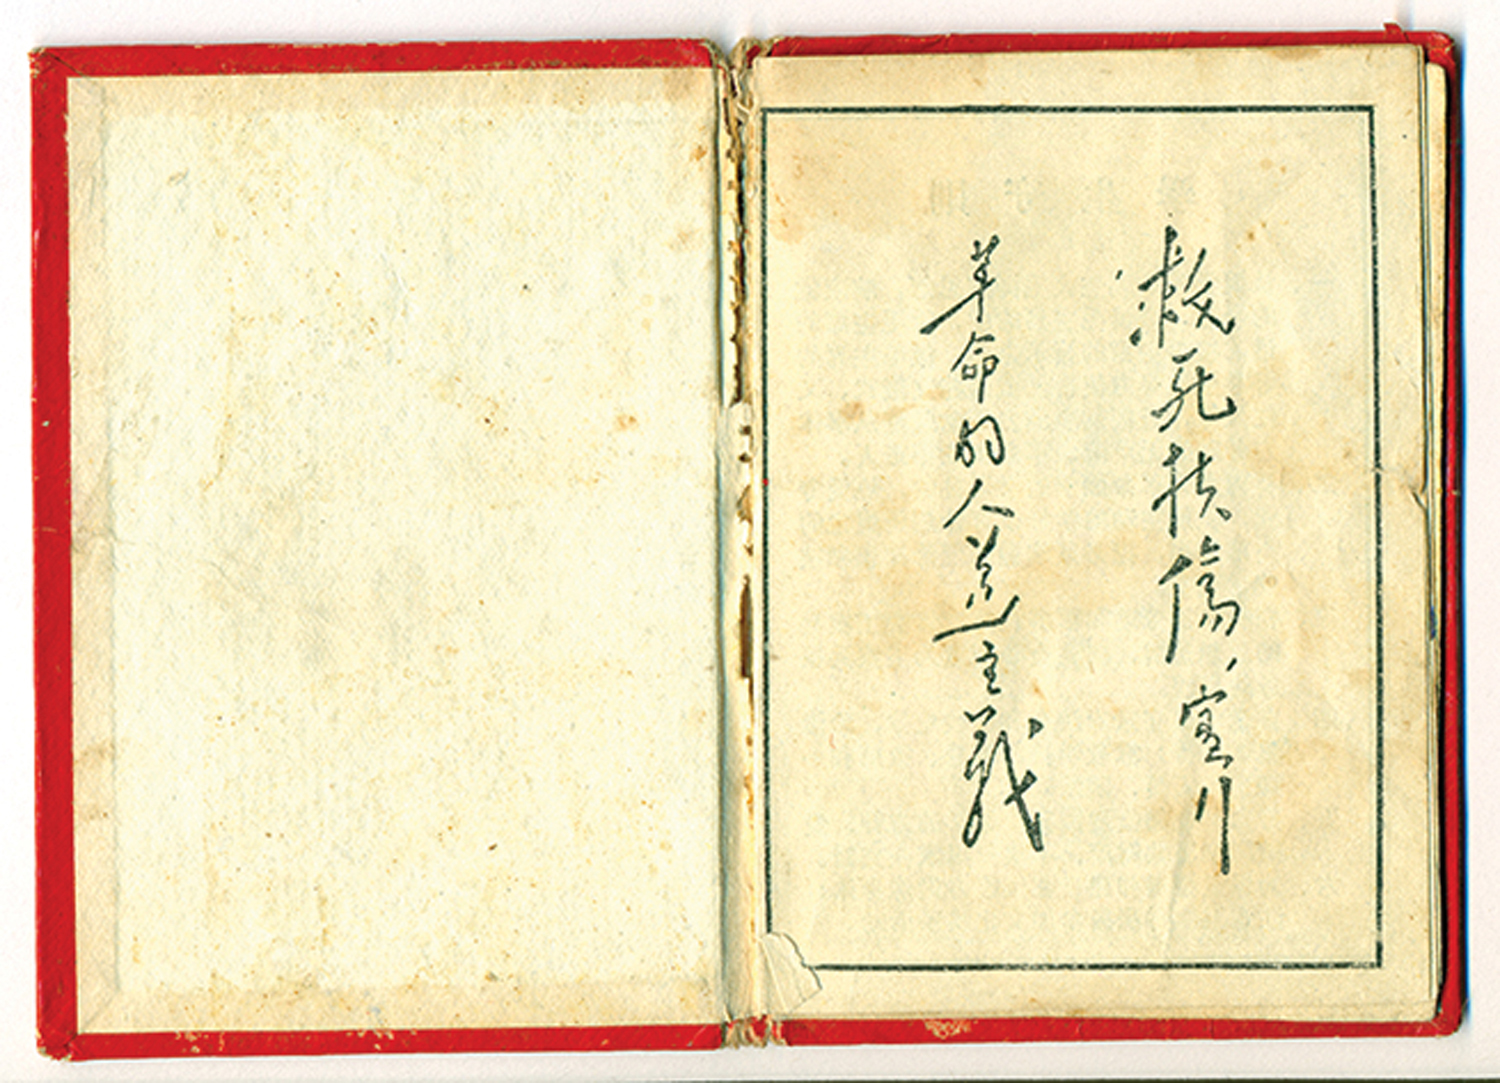 救死扶傷，實行
革命的人道主義